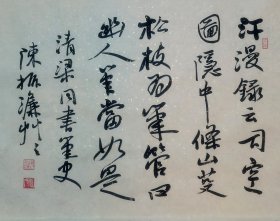 汗漫录云司空
图隐中條山芟
松枝为筆管曰
幽人筆當如是
清梁同書筆史
陳振濂艸